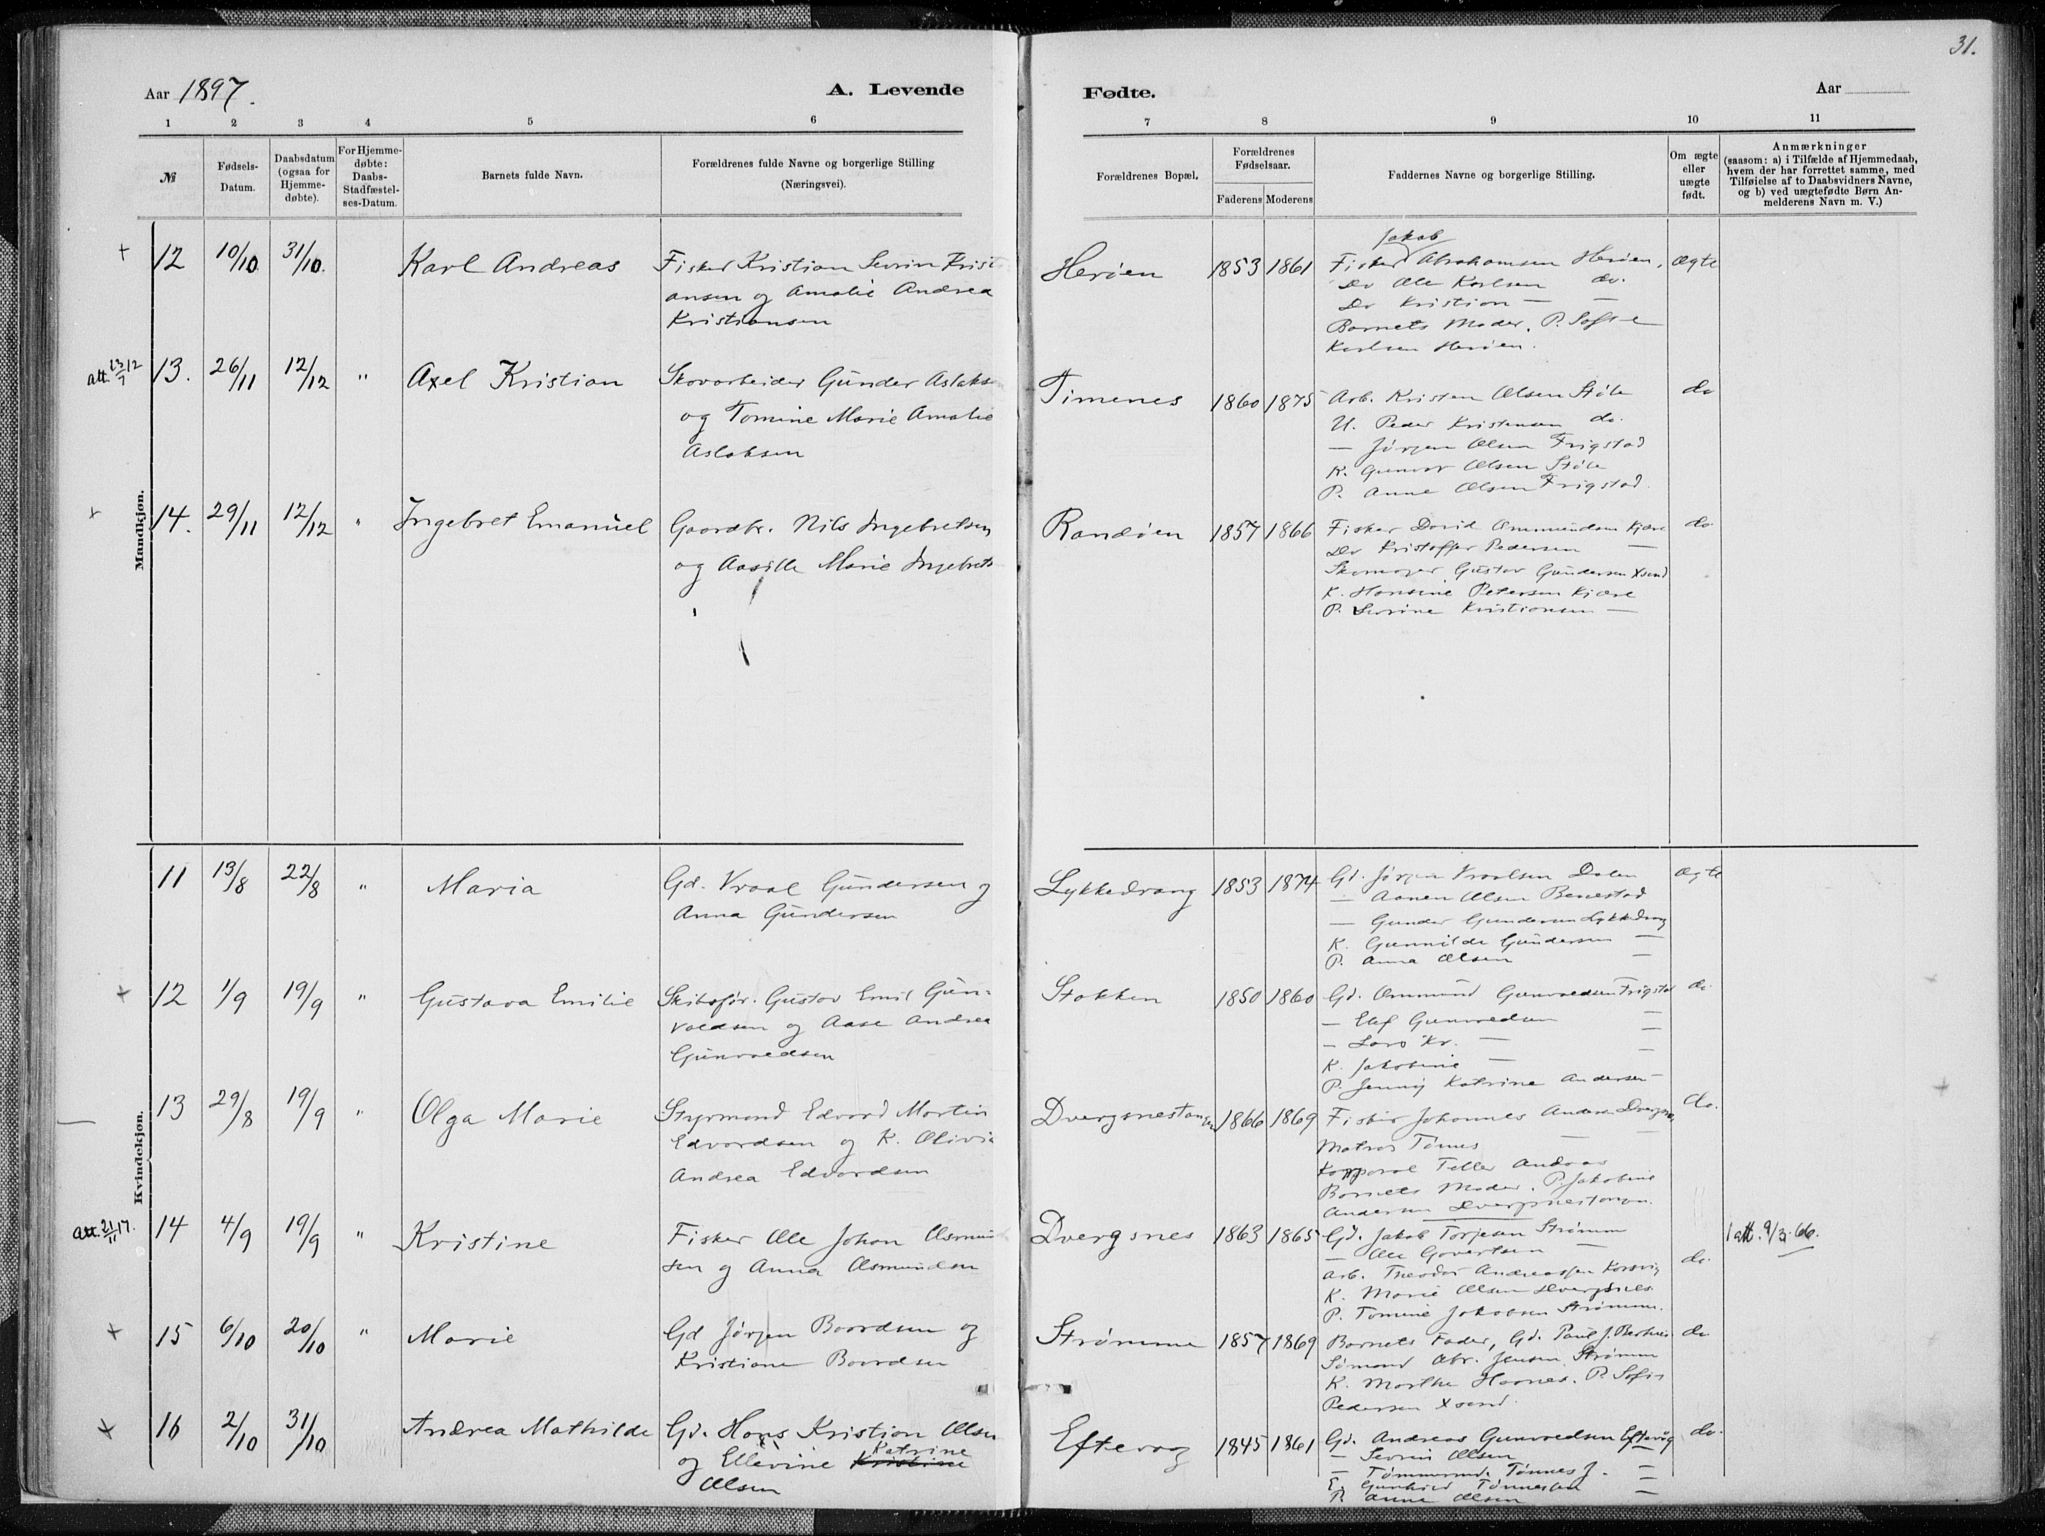 31.
Aar 1897.
A. Levende
Fødte.
Aar
1 2 3 4 5 6 7 8 9 10 11
№
Fødsels-Datum.
Daabsdatum (ogsaa for Hjemme-døbte).
For Hjemme-døbte: Daabs-Stadfæstel-ses-Datum.
Barnets fulde Navn.
Forældrenes fulde Navne og borgerlige Stilling
(Næringsvei).
Forældrenes Bopæl.
Forældrenes Fødselsaar.
Faderens Moderens
Faddernes Navne og borgerlige Stilling.
Om ægte eller uægte født.
Anmærkninger
(saasom: a) i Tilfælde af Hjemmedaab,
hvem der har forrettet samme, med
Tilføielse af to Daabsvidners Navne,
og b) ved uægtefødte Børn An-
melderens Navn m. V.)
Mandkjøn.
+ 12 10/10 31/10. Karl Andreas
Fisker Kristian Sevrin Kristi
ansen og Amalie Andrea
Kristiansen
Herøen 1853 1861
Jakob
Fisker Abrahamsen Herøen,
Do Ole Karlsen do.
Do Kristian — —
Barnets Moder. P. Sofie
Karlsen Herøen.
ægte
att. 13/7 12 13. 26/11 12/12 " Axel Kristian
Skovarbeider Gunder Aslaks
og Tomine Marie Amalie
Aslaksen
Timenes 1860 1875
Arb. Kristen Olsen Støle
U. Peder Kristensen do.
— Jørgen Olsen Frigstad
K. Gunvor Olsen Støle
P. Anne Olsen Frigstad.
do
× 14. 29/11 12/12 " Ingebret Emanuel
Gaardbr. Nils Ingebretsen
og Aasille Marie Ingebrets
Randøen 1857 1866
Fisker David Ommundsen Kjære
Do Kristoffer Pedersen —
Skomager Gustav Gundersen Xsand
K. Hansine Petersen Kjære
P. Sevrine Kristiansen —
do
Kvindekjøn.
11 13/8 22/8 " Maria
Gd. Vraal Gundersen og
Anna Gundersen
Lykkedrang 1853 1874
Gd. Jørgen Vraalsen Dalen
— Aanen Olsen Benestad
— Gunder Gundersen Lykkedrang
K. Gunnilde Gundersen —
P. Anna Olsen —
ægte
+ 12 1/9 19/9 " Gustava Emilie
Skibsfør. Gustav Emil Gun-
valdsen og Aase Andrea
Gunvaldsen
Stokken 1850 1860
Gd. Ommund Gunvaldsen Frigstad
— Elef Gunvaldsen —
— Lars Kr. — —
K. Jakobine —
P. Jenny Katrine Andersen —
do
— 13 29/8 19/9 " Olga Marie
Styrmand Edvard Martin
Edvardsen og K. Olivia
Andrea Edvardsen
Dvergsnestangen 1866 1869
Fisker Johannes Anders. Dvergsne
Matros Tønnes — —
Korporal Teller Andreas
Barnets Moder. P. Jakobine
Andersen Dvergsnestangen.
do.
att. 21/11 17. 14 4/9 19/9 " Kristine
Fisker Ole Johan Asmund
sen og Anna Asmundsen
Dvergsnes 1863 1865
Gd. Jakob Torjesen Strømm
— Ole Govertsen —
Arb. Theodor Andreassen Korsvig
K. Marie Olsen Dvergsnes
P. Tomine Jakobsen Strømme.
do.
1 att. 9/3. 66.
+ 15 6/10 20/10 " Marie
Gd Jørgen Baardsen og
Kristiane Baardsen
Strømme 1857 1869
Barnets Fader, Gd. Paul J.
Sømand Abr. Jensen Strømm
K. Marthe Haanes. P. Sofie
Pedersen Xsand.
do
× 16 2/10 31/10 Andrea Mathilde
Gd. Hans Kristian Olsen
Katrine
og Ellevine Kristine
Olsen
Eftevaag 1845 1861
Gd. Andreas Gunvaldsen Eftevåg
— Sevrin Olsen —
— Tømmermd. Tønnes J. —
E. Gunhild Tønnesen —
P. Anne Olsen —
do.